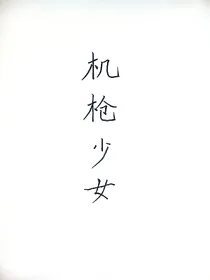 机枪少女